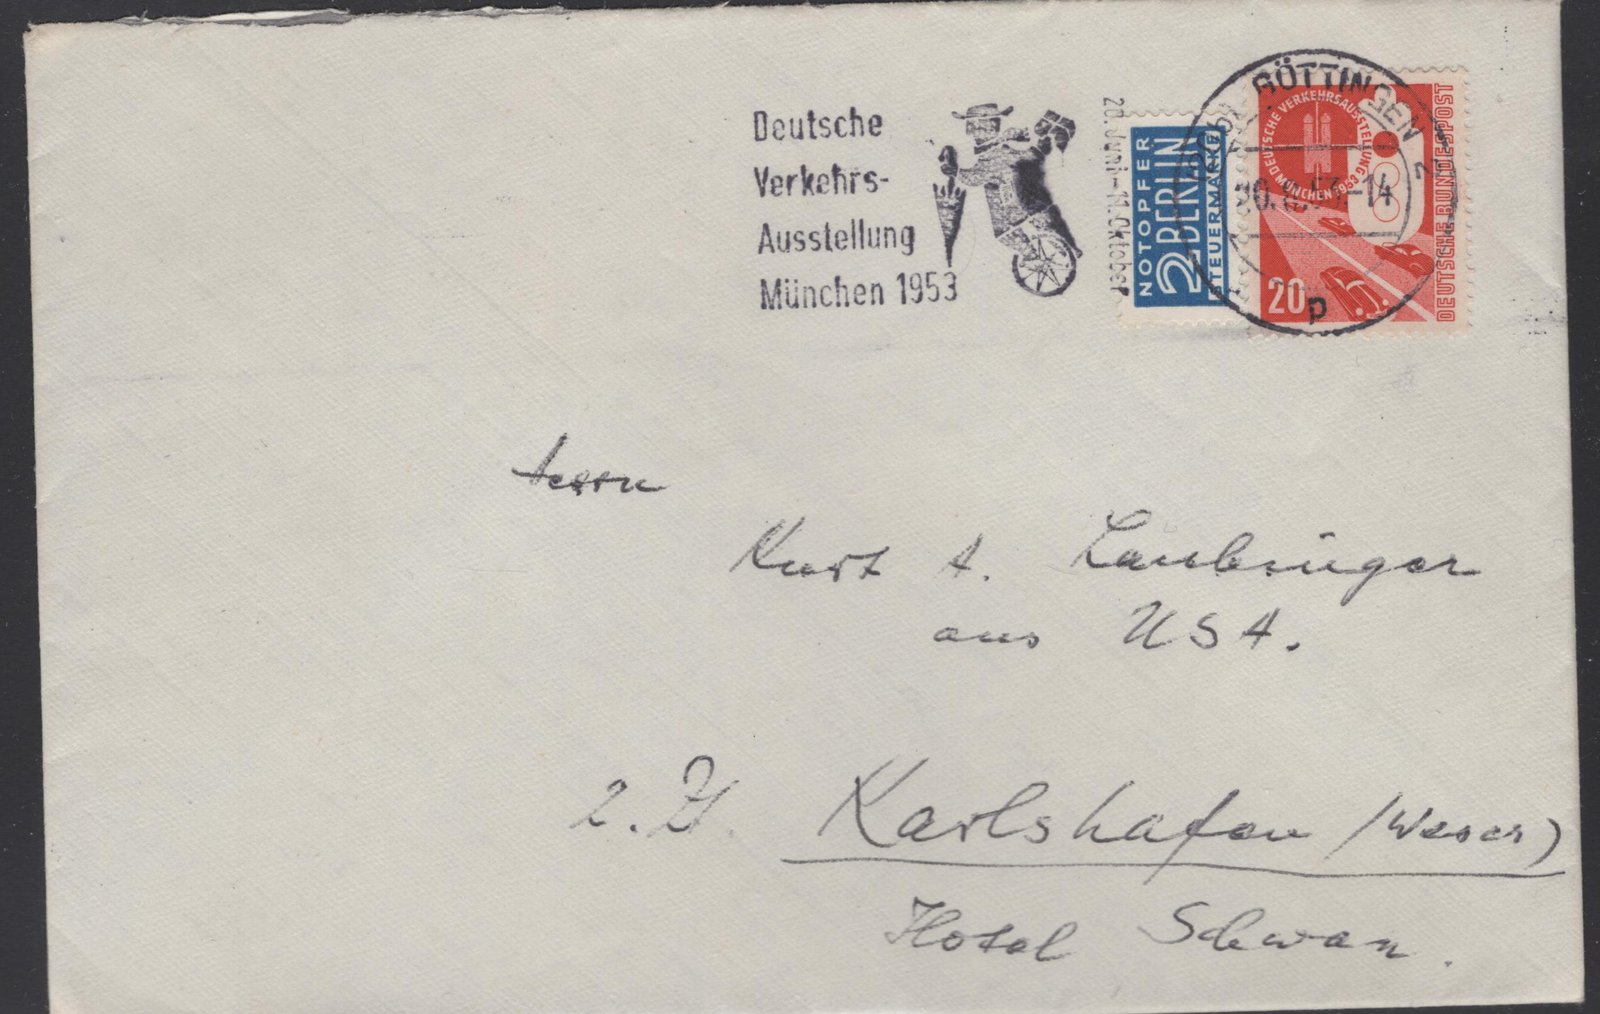 Deutsche
Verkehrs-
Ausstellung
München 1953
20. Juni - 11. Oktober
NOTOPFER
2 BERLIN
STEUERMARKE
GÖTTINGEN 2
p
DEUTSCHE VERKEHRSAUSSTELLUNG
MÜNCHEN 1953
20
DEUTSCHE BUNDESPOST
Herrn
Kurt A. Laubinger
aus USA.
z. Zt. Karlshafen (Weser)
Hotel Schwan.